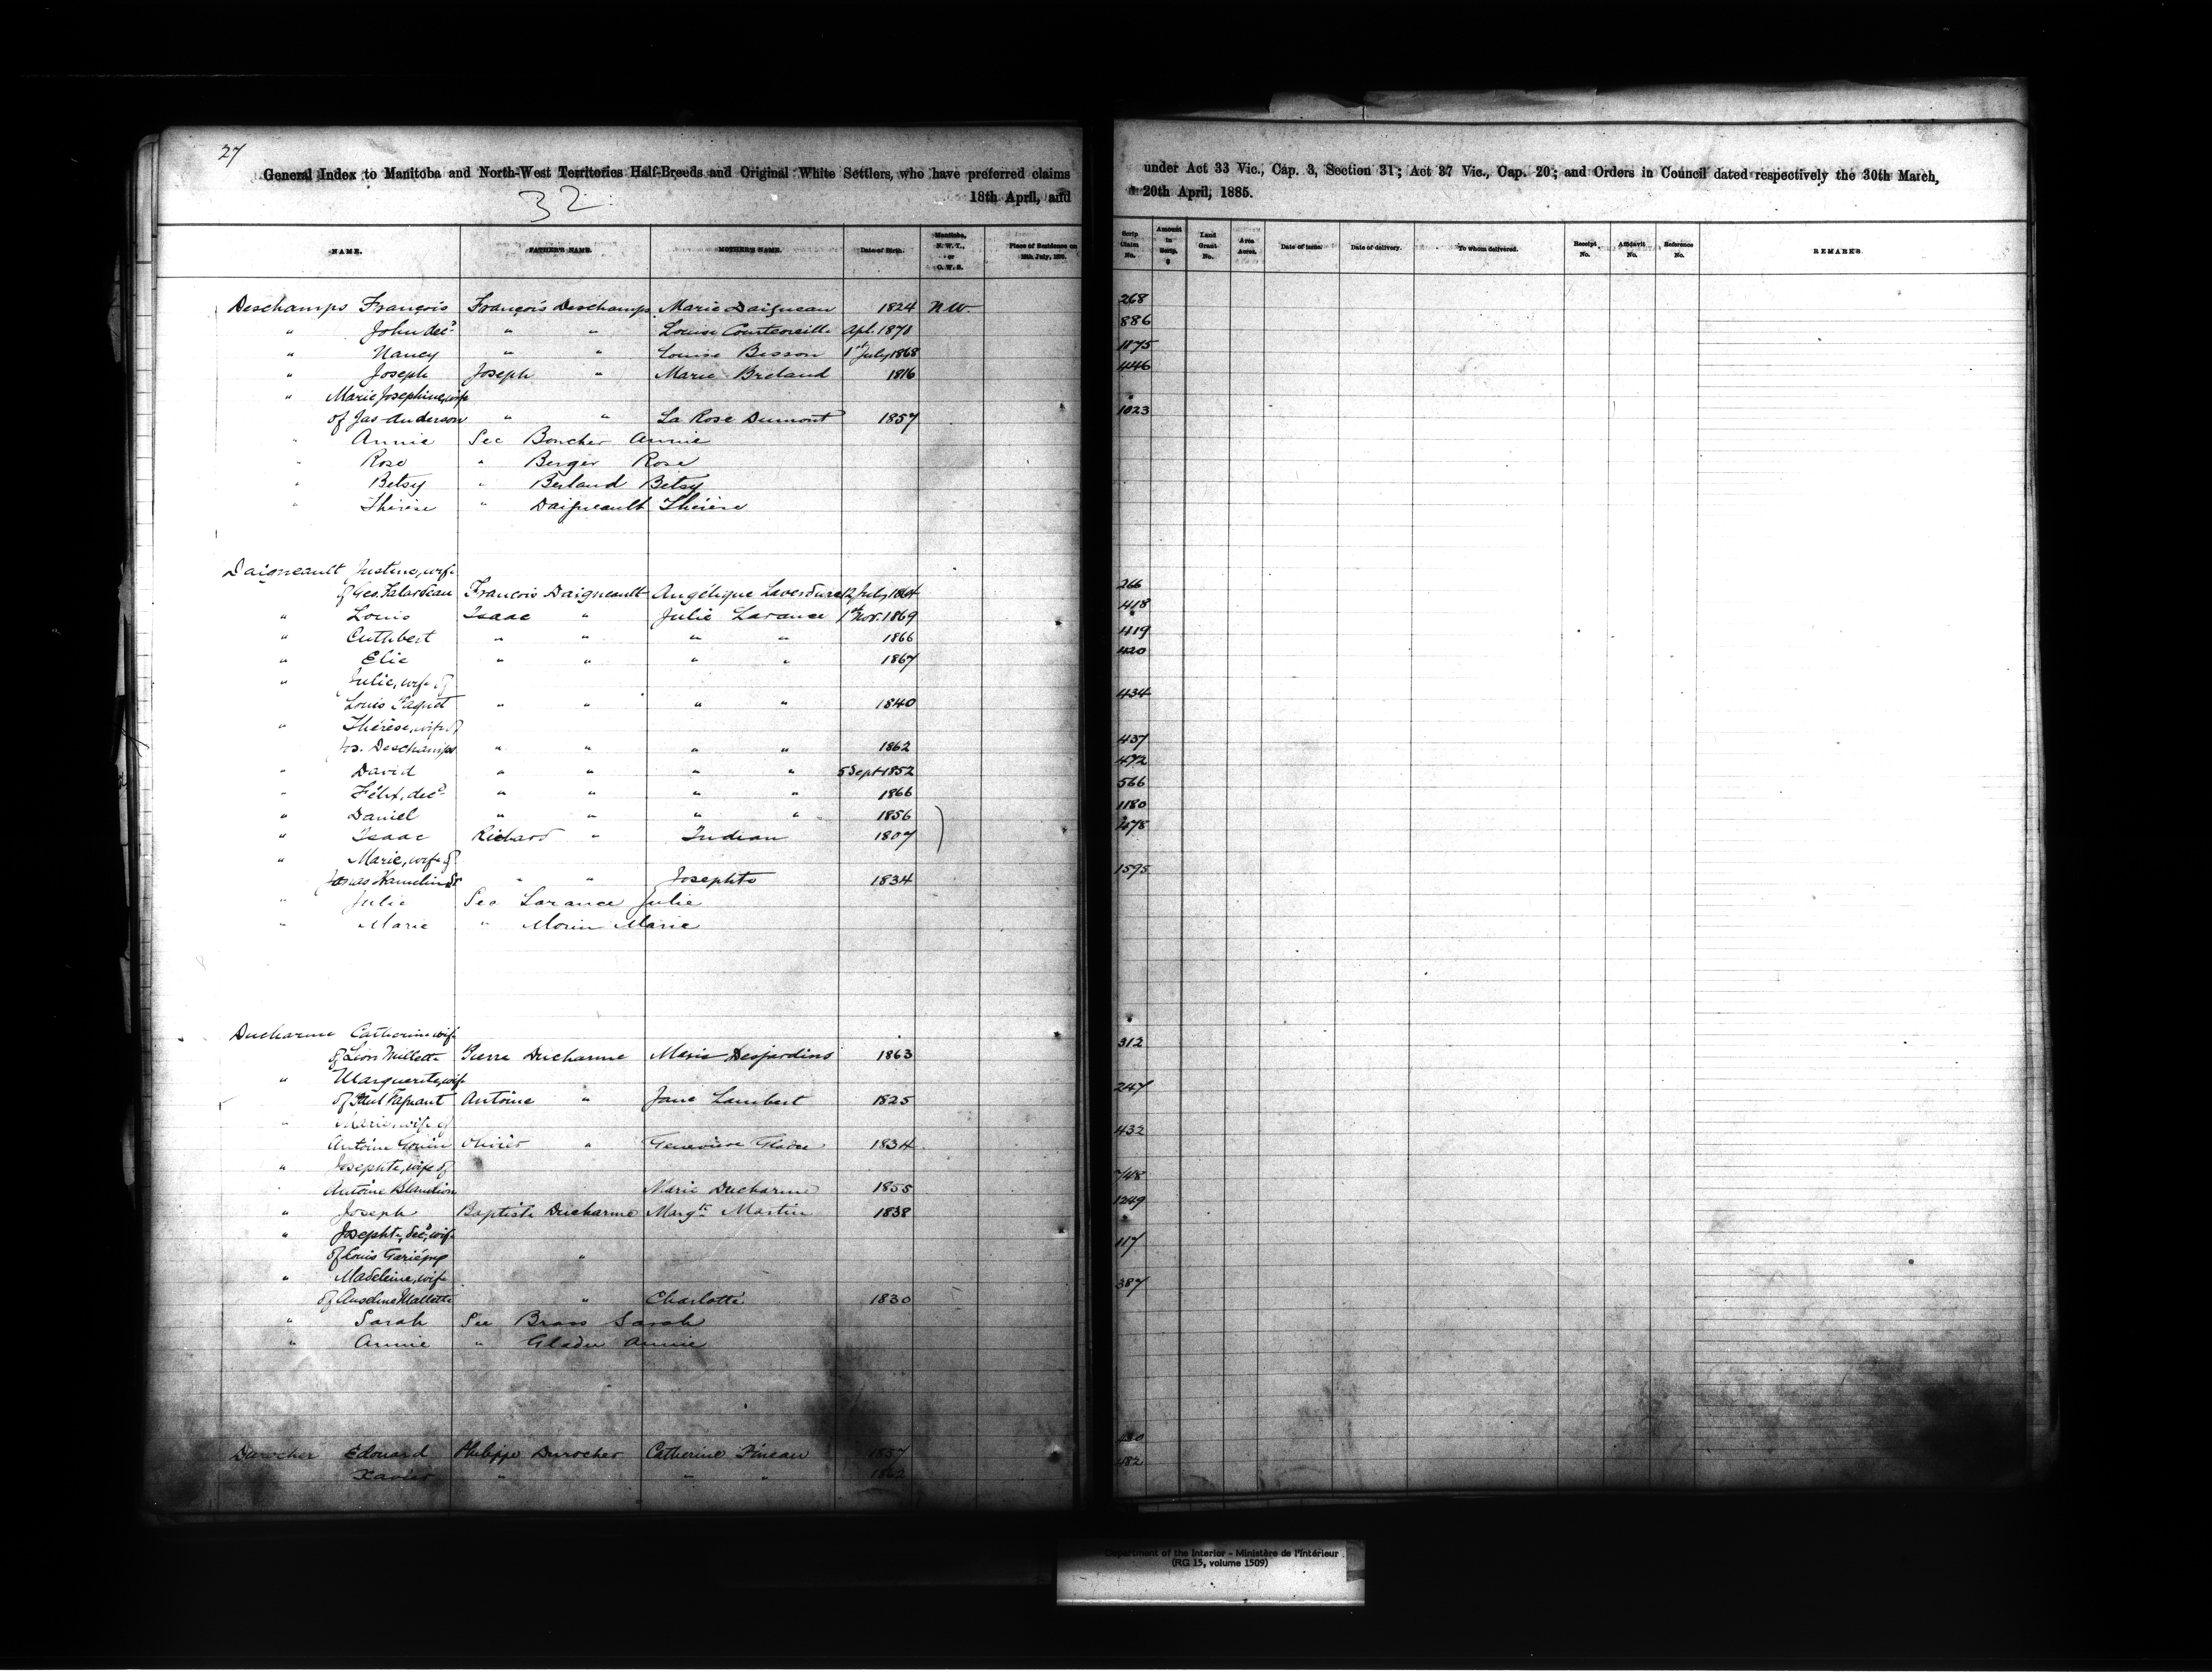 27
General Index to Manitoba and North-West Territories Half-Breeds and Original White Settlers, who have preferred claims under Act 33 Vic., Cap. 3, Section 31; Act 37 Vic., Cap. 20; and Orders in Council dated respectively the 30th March,
32
18th April, and 20th April, 1885.
NAME. FATHER'S NAME. MOTHER'S NAME. Date of Birth. Manitoba, N. W. T., or O. W. S. Place of Residence on 15th July, 1870. Scrip Claim No. Amount in Scrip. $ Land Grant No. Area Acres. Date of Issue. Date of delivery. To whom delivered. Receipt No. Affidavit No. Reference No. REMARKS.
Deschamps François François Deschamps Marie Daigneau 1824 N.W. 268
" John decd " " Louise Courteoreille Apl. 1871 886
" Nancy " " Louise Bisson 1st July 1868 1175
" Joseph Joseph " Marie Breland 1816 446
" Marie Josephine, wife
of Jas Anderson " " La Rose Dumont 1857 1023
" Annie See Boucher Annie
" Rose " Berger Rose
" Betsy " Berland Betsy
" Thérèse " Daigneault Thérèse
Daigneault Justine, wife
of Geo. Falardeau François Daigneault Angélique Laverdure 12 July 1864 266
" Louis Isaac " Julie Larance 1st Nov. 1869 418
" Cuthbert " " " " 1866 419
" Elie " " " " 1867 420
" Julie, wife of
Louis Paquet " " " " 1840 434
" Thérèse, wife of
Jos. Deschamps " " " " 1862 437
" David " " " " 5 Sept 1852 472
" Félix, decd " " " " 1866 566
" Daniel " " " " 1856 1180
" Isaac Richard " Indian 1807
" Marie, wife of
Hamelin Sr " " Josephte 1834 1595
" Julie See Larance Julie
" Marie " Morin Marie
Ducharme Catherine wife
of Léon Millette Pierre Ducharme Marie Desjardins 1863 312
" Marguerite, wife
of Paul Pagnant Antoine " Jane Lambert 1825 247
" Marie, wife of
Antoine Olivier " Geneviève Gladue 1834 432
" Josephte, wife of
Antoine Blandion Marie Ducharme 1855 748
" Joseph Baptiste Ducharme Margte Martin 1838 1249
" Josephte, decd, wife
of Louis Gariépy " 117
" Madeleine, wife
of Anselme Mallette " Charlotte 1830 387
" Sarah See Brass Sarah
" Annie " Gladu Annie
Durocher Edouard Philippe Durocher Catherine Pineau 1857
Xavier " " " 1862 482
Department of the Interior - Ministère de l'Intérieur
(RG 15, volume 1509)